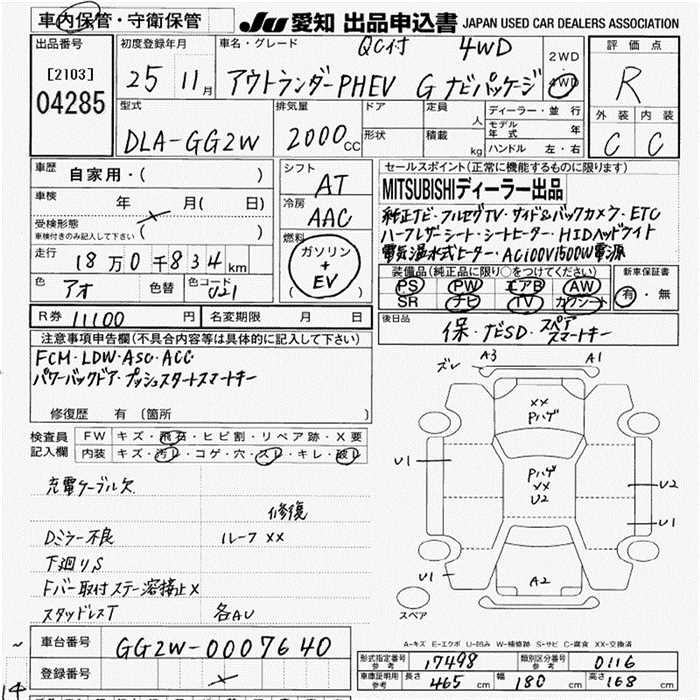 車内保管・守衛保管
JU 愛知 出品申込書 JAPAN USED CAR DEALERS ASSOCIATION
出品番号
[2103]
04285
初度登録年月
25 11月
車名・グレード
QC付 4WD
アウトランダーPHEV G ナビパッケージ
2WD
4WD
評価点
R
外装 内装
C C
型式
DLA-GG2W
排気量
2000cc
ドア
形状
定員 人
積載 kg
ディーラー・並行
モデル年式 年
ハンドル 左・右
車歴 自家用・( )
車検 年 月( 日)
受検形態
車検付きのみ記入して下さい ( )
走行 18万0千834km
色 アオ 色替 色コード U21
シフト
AT
冷房
AAC
燃料
ガソリン
+
EV
( )
セールスポイント(正常に機能するものに限ります)
MITSUBISHIディーラー出品
純正ナビ・フルセグTV・サイド&バックカメラ・ETC
ハーフレザーシート・シートヒーター・HIDヘッドライト
電気温水式ヒーター・AC100V1500W電源
装備品(純正品に限り○をつけてください)
PS PW エアB AW
SR ナビ TV カワシート
新車保証書
有・無
R券 11100 円 名変期限 月 日
後日品
保・ナビSD・スペアスマートキー
注意事項申告欄(不具合内容等は具体的に記入して下さい)
FCM・LDW・ASC・ACC・
パワーバックドア・プッシュスタートスマートキー
修復歴 有 (箇所 )
検査員 FW キズ・飛石・ヒビ割・リペア跡・X要
記入欄 内装 キズ・汚レ・コゲ・穴・スレ・キレ・破レ
充電ケーブル欠
修復
Dミラー不良 ルーフ XX
下廻りS
Fバー取付ステー溶接止X
スタッドレスT 各AU
ズレ A3 A1
XX
Pハゲ
U1
Pハゲ
XX
U2
U2
U1
U1
A2
スペア
A-キズ E-エクボ U-凹み W-補修跡 S-サビ C-腐食 XX-交換済
車台番号 GG2W-0007640
登録番号
形式指定番号 参考 17498 類別区分番号 参考 0116
車庫証明用 参考 長さ 465cm 幅 180cm 高さ 168cm
~
14